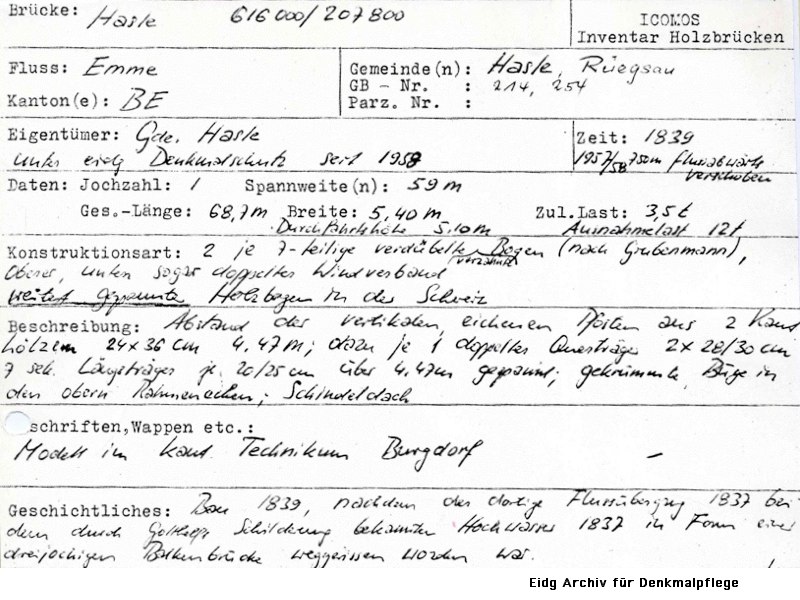 Brücke: Hasle 616 000/207 800
ICOMOS
Inventar Holzbrücken
Fluss: Emme
Kanton(e): BE
Gemeinde(n): Hasle, Rüegsau
GB - Nr. : 214, 254
Parz. Nr. :
Eigentümer: Gde. Hasle
unter eidg Denkmalschutz seit 1958
Zeit: 1839
1957/58 750m flussabwärts
verschoben
Daten: Jochzahl: 1 Spannweite(n): 59 m
Ges.-Länge: 68,7m Breite: 5,40 m Zul.Last: 3,5t
Durchfahrtshöhe 5,10m Ausnahmelast 12t
Konstruktionsart: 2 je 7-teilige verdübelte Bogen (nach Grubenmann),
verzahnte
Oberer, unten sogar doppelter Windverband
weitest gespannter Holzbogen in der Schweiz
Beschreibung: Abstand der vertikalen, eichenen Pfosten aus 2 Kant
hölzern 24x36 cm 4,47m; dazu je 1 doppelter Querträger 2x 28/30 cm
7 sek. Längsträger je 20/25 cm über 4,47m gespannt; gekrümmte Büge in
den obern Rahmenecken; Schindeldach
schriften,Wappen etc.:
Modell im kant. Technikum Burgdorf –
Geschichtliches: Bau 1839, nachdem der dortige Flussübergang 1837 bei
dem durch Gotthelfs Schilderung bekannten Hochwasser 1837 in Form einer
dreijochigen Balkenbrücke weggerissen worden war.
Eidg Archiv für Denkmalpflege